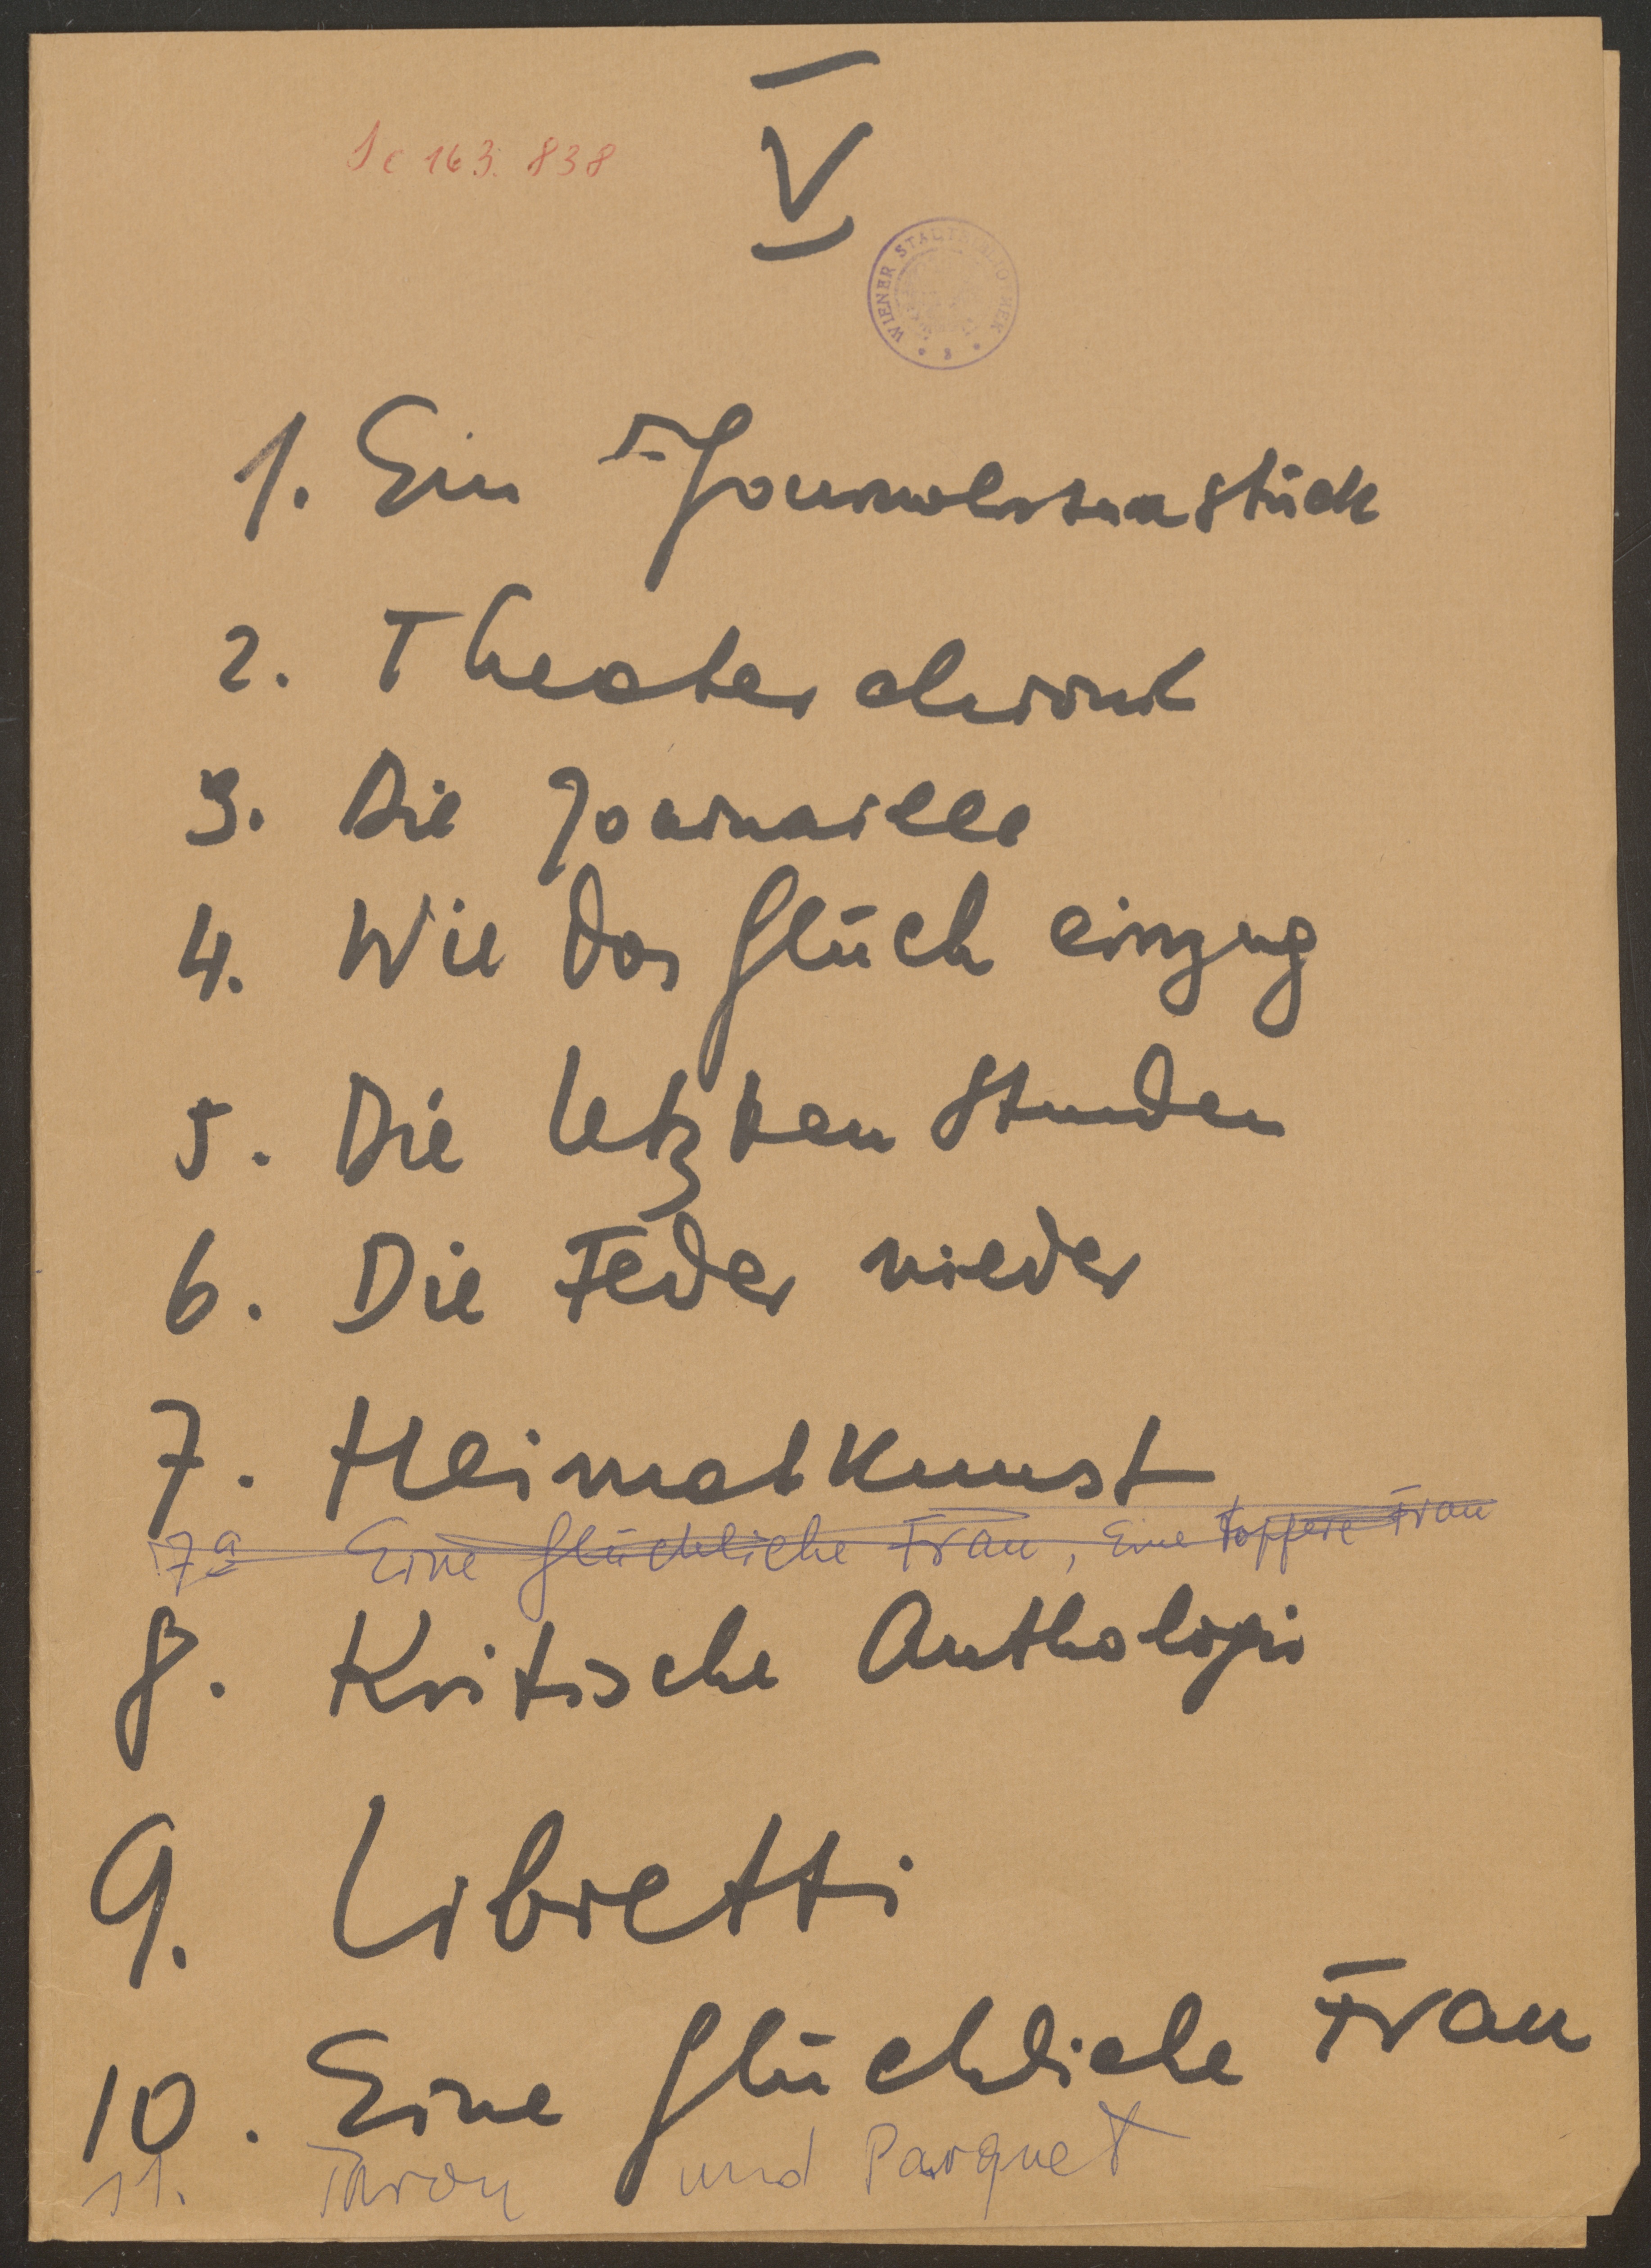 Ic 163.838
V
WIENER STADTBIBLIOTHEK
1. Ein Journalistenstück
2. Theater
3. Die Journaille
4. Wie das Glück einzug
5. Die letzten Stunden
6. Die Feder nieder
7. Heimatkunst
7a Eine glückliche Frau, Eine tapfere Frau
8. Kritische Anthologie
9. Libretti
10. Eine glückliche Frau
11. Thron und Parquet